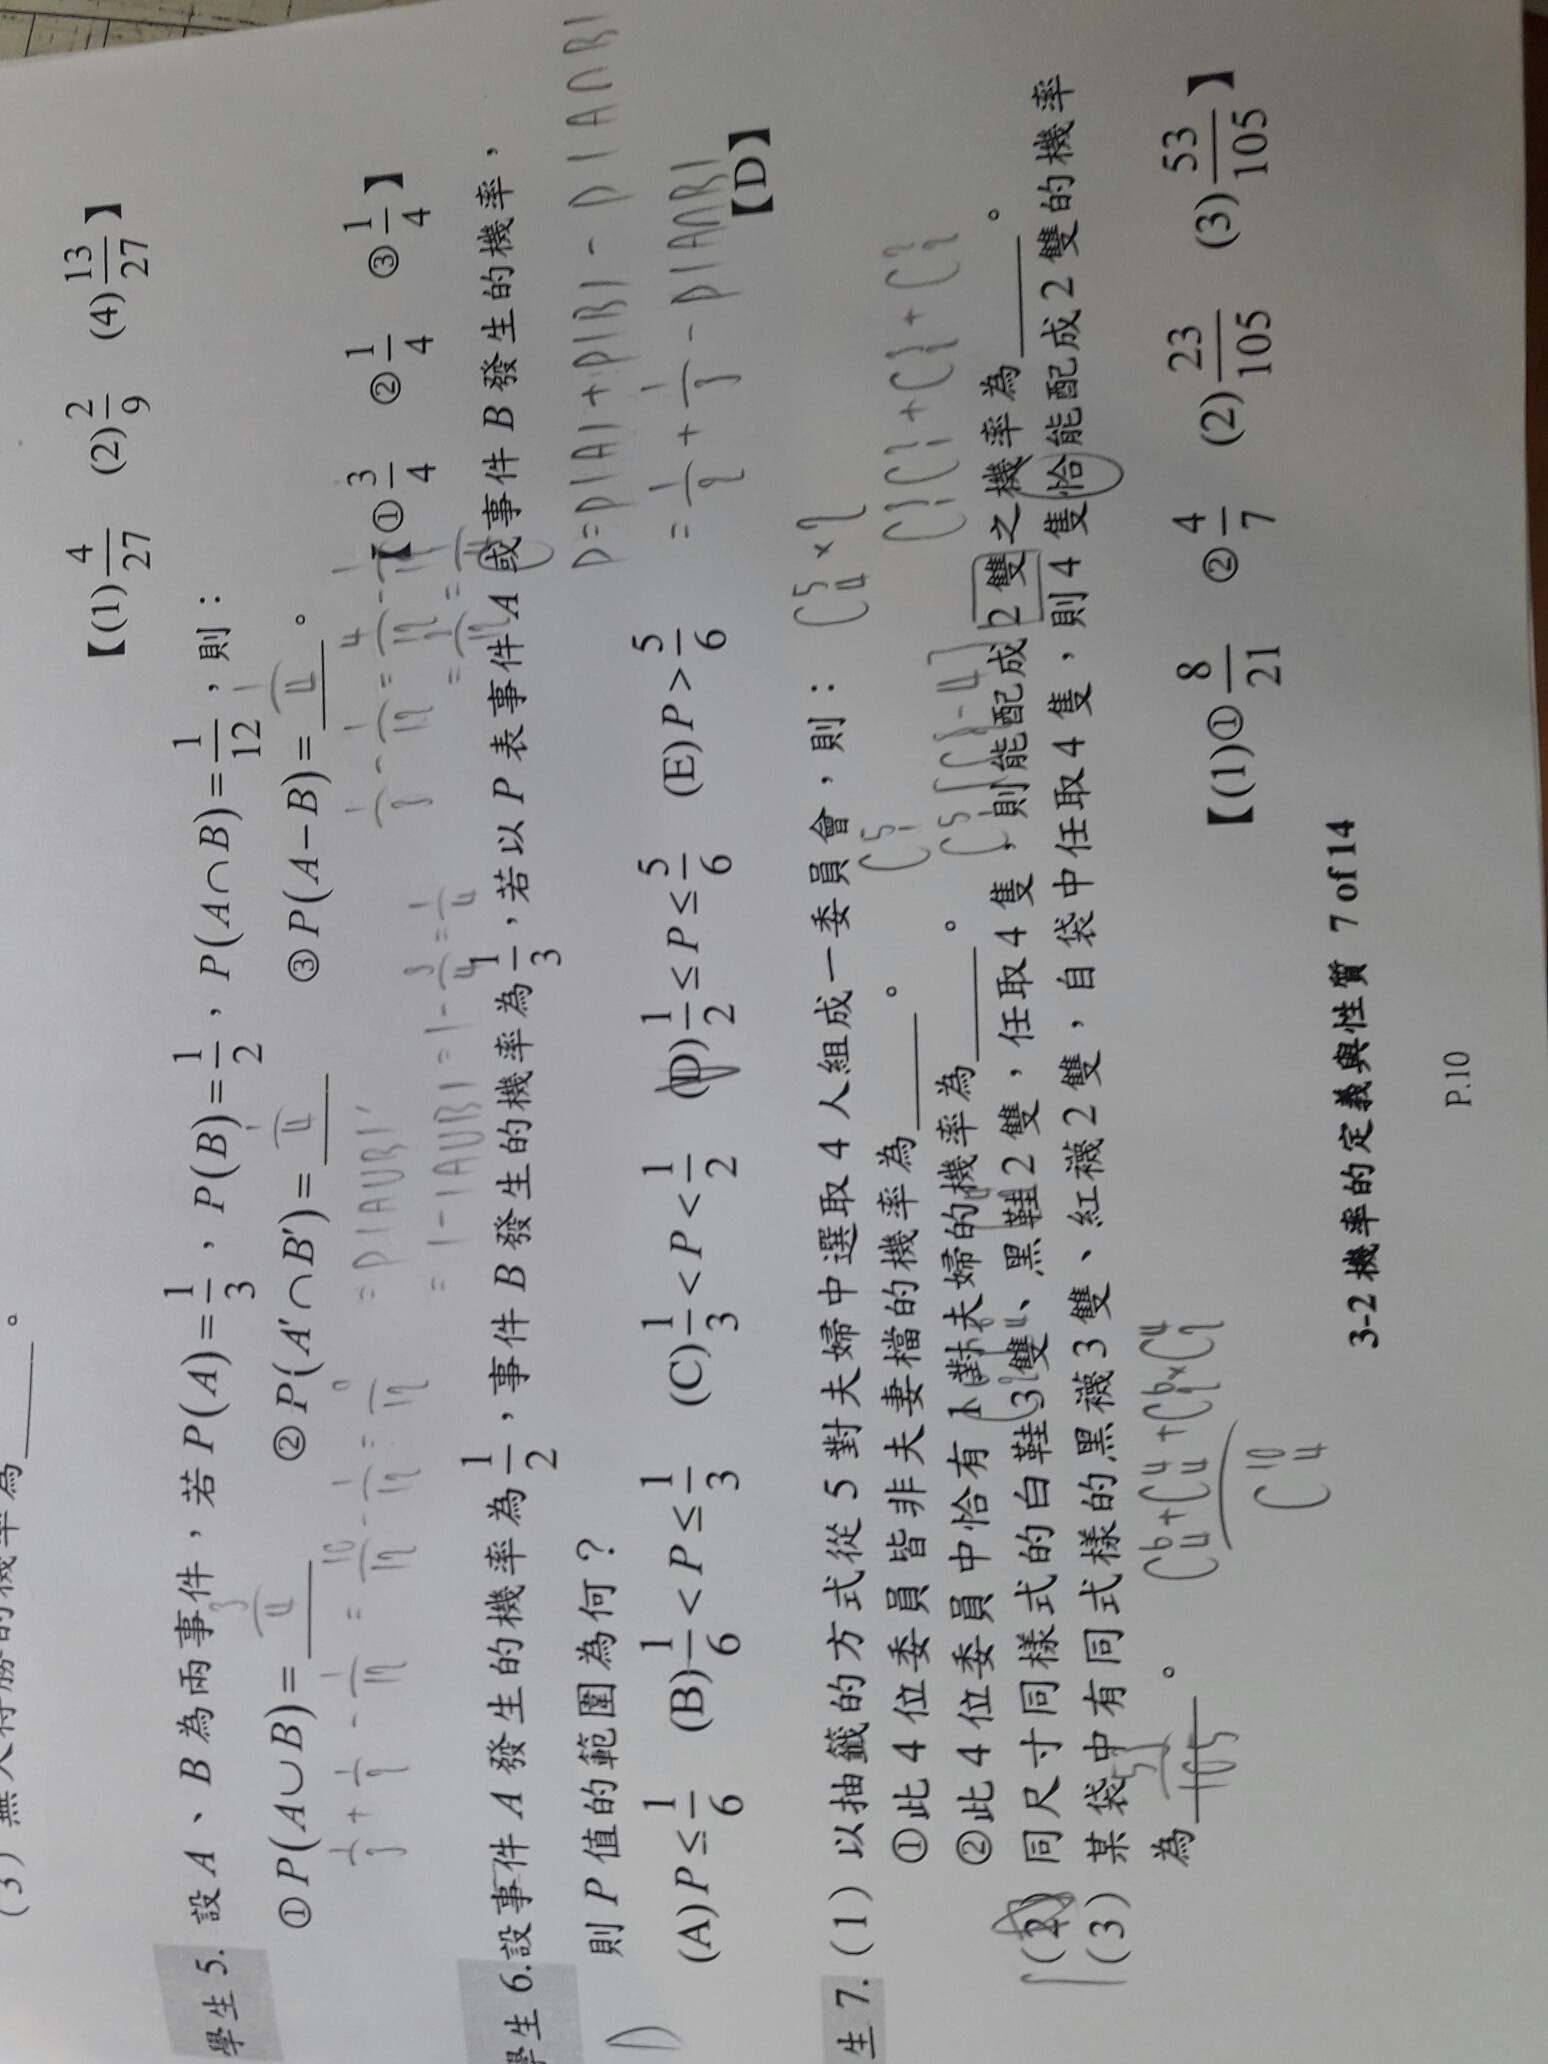 (3) 無人得勝的機率為______。
【(1)4/27 (2)2/9 (4)13/27】
學生 5. 設 A、B 為兩事件，若 P(A)=1/3，P(B)=1/2，P(A∩B)=1/12，則：
3/4 1/4 1/4
①P(A∪B)=______ ②P(A′∩B′)=______ ③P(A−B)=______。
1/3+1/2−1/12=10/12−1/12=9/12
=P(A∪B)′
=1−(A∪B)=1−3/4=1/4
【①3/4 ②1/4 ③1/4】
學生 6. 設事件 A 發生的機率為1/2，事件 B 發生的機率為1/3，若以 P 表事件 A 或事件 B 發生的機率，
則 P 值的範圍為何？
P=P(A)+P(B)−P(A∩B)
=1/2+1/3−P(A∩B)
(A)P≤1/6 (B)1/6<P≤1/3 (C)1/3<P<1/2 (D)1/2≤P≤5/6 (E)P>5/6
【D】
生 7. (1) 以抽籤的方式從 5 對夫婦中選取 4 人組成一委員會，則：
①此 4 位委員皆非夫妻檔的機率為______。
②此 4 位委員中恰有 1 對夫婦的機率為______。
(2) 同尺寸同樣式的白鞋 3 雙、黑鞋 2 雙，任取 4 隻，則能配成 2 雙之機率為______。
(3) 某袋中有同式樣的黑襪 3 雙、紅襪 2 雙，自袋中任取 4 隻，則 4 隻恰能配成 2 雙的機率
為______。
53/105
【(1)①8/21 ②4/7 (2)23/105 (3)53/105】
3-2 機率的定義與性質 7 of 14
P.10